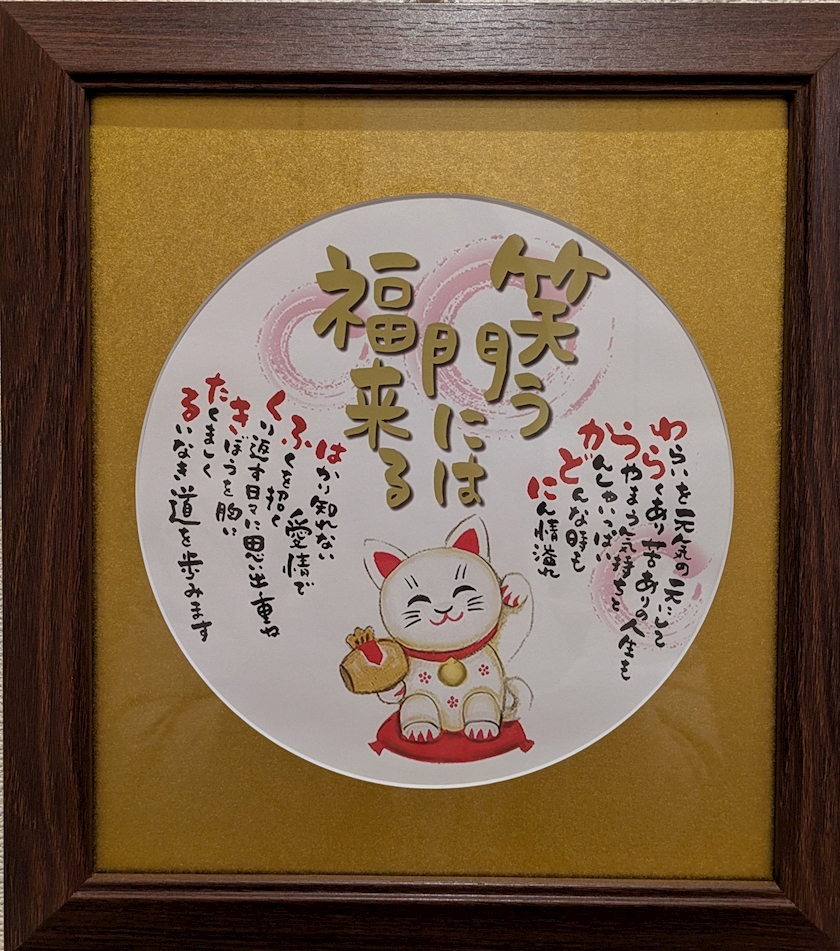 笑う
門には
福来る
わらいを元気の元にして
らくあり苦ありの人生も
うやまう気持ちと
かんしゃいっぱい
どんな時も
にん情溢れ
はかり知れない
ふくを招く愛情で
くり返す日々に思い出重ね
きぼうを胸に
たくましく
るいなき道を歩みます